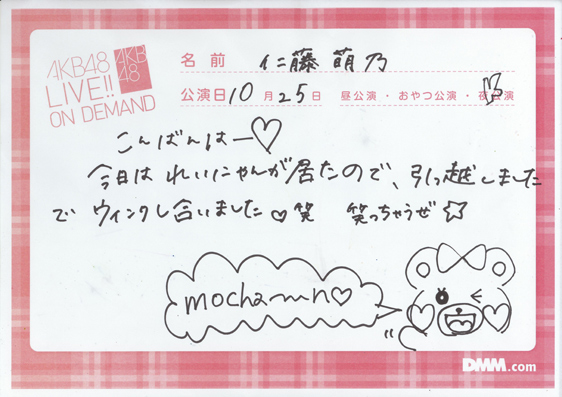 AKB48
LIVE!!
ON DEMAND
AKB
48
名前 仁藤萌乃
公演日 10月25日 昼公演・おやつ公演・夜公演
こんばんはー♡
今日は れいにゃんが居たので、引っ越しました
で ウィンクし合いました♡笑 笑っちゃうぜ☆
mocha〜n♡
DMM.com